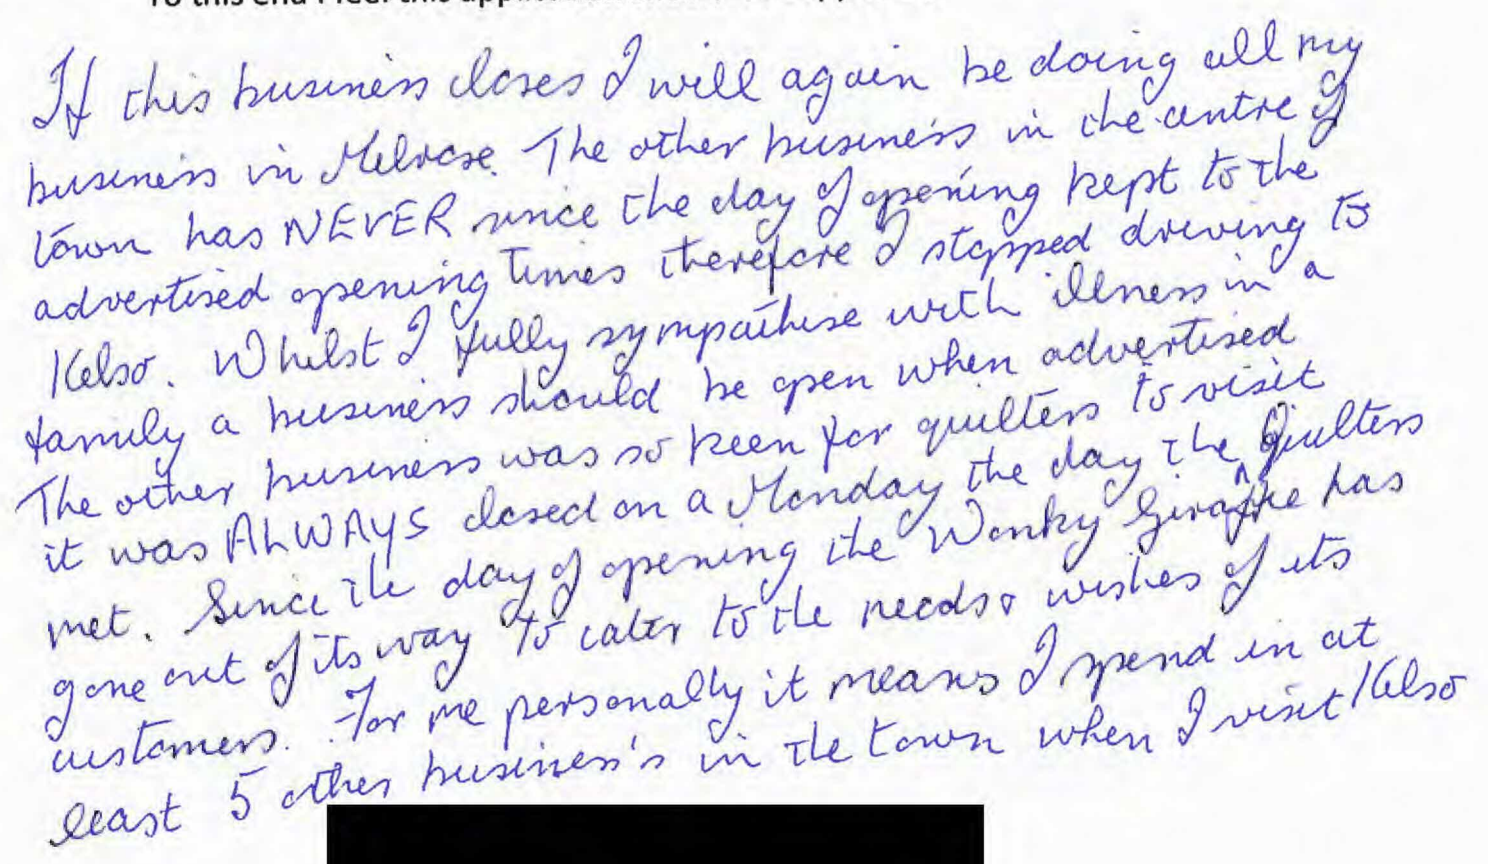 To this end I feel this
If this business closes I will again be doing all my
business in Melrose. The other business in the centre of
town has NEVER since the day of opening kept to the
advertised opening times therefore I stopped driving to
Kelso. Whilst I fully sympathise with illness in a
family a business should be open when advertised
The other business was so keen for quilters to visit
it was ALWAYS closed on a Monday the day the Quilters
met. Since the day of opening the Wonky Giraffe has
gone out of its way to cater to the needs & wishes of its
customers. For me personally it means I spend in at
least 5 other business's in the town when I visit Kelso